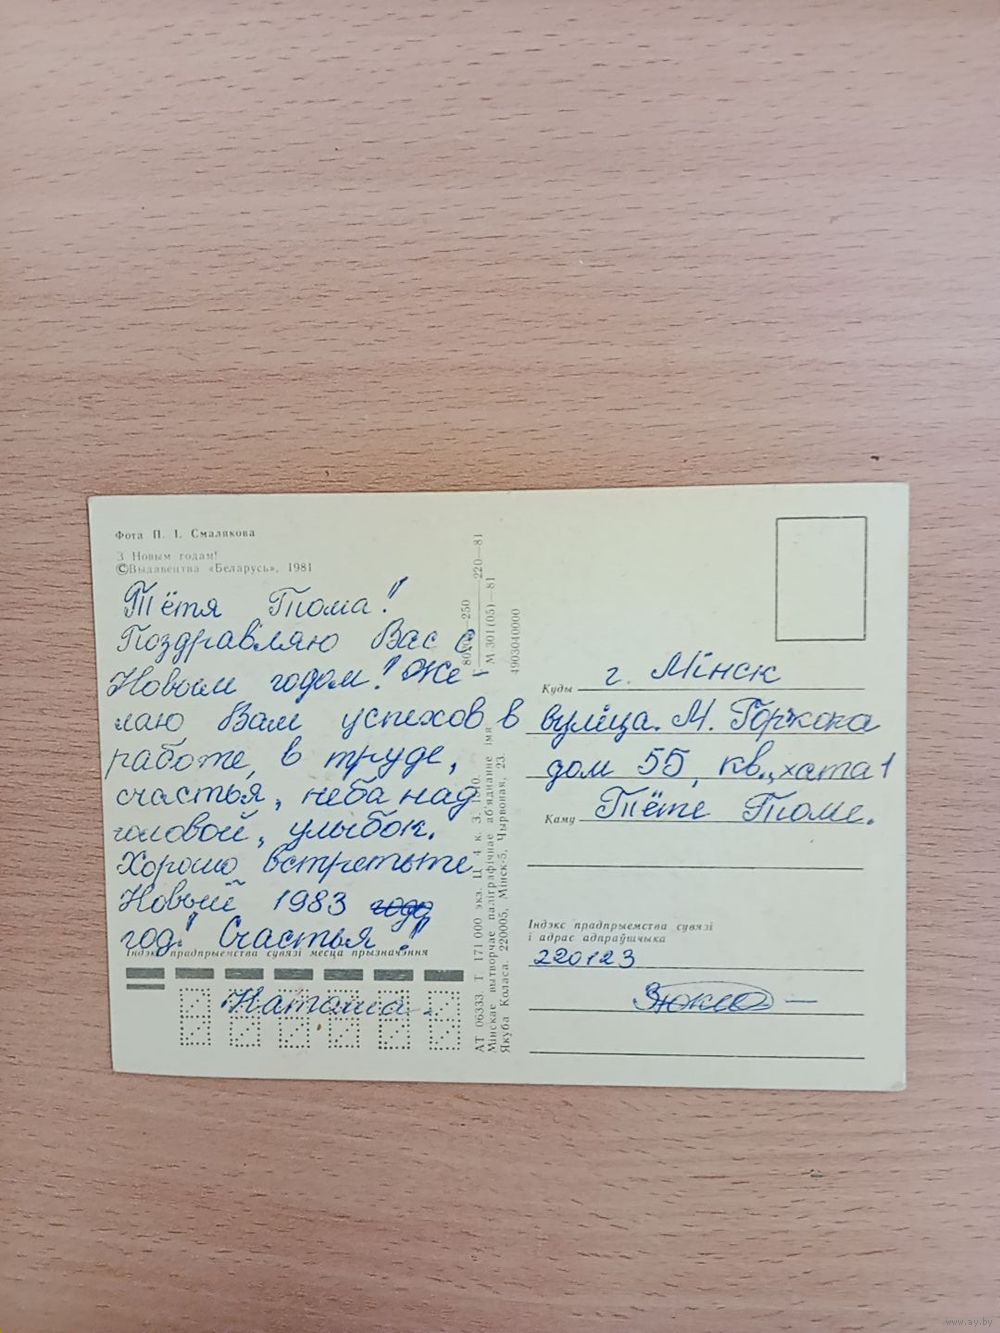 Фота П. І. Смалякова
З Новым годам!
©Выдавецтва «Беларусь», 1981
Тётя Тома!
Поздравляю Вас с
Новым годом! Же-
лаю Вам успехов в
работе, в труде,
счастья, неба над
головой, улыбок.
Хорошо встретьте
Новый 1983 году
год! Счастья!
Індэкс прадпрыемства сувязі месца прызначэння
Наташа
220—81
М 301(05)—81
4903040000
АТ 06333. Т. 171 000 экз. Ц. 4 к. З.
Мінскае вытворчае паліграфічнае аб'яднанне імя
Якуба Коласа. 220005, Мінск-5, Чырвоная, 23.
Куды г. Мінск
вуліца. М. Горкока
дом 55, кв., хата 1
Каму Тёте Томе.
Індэкс прадпрыемства сувязі
і адрас адпраўшчыка
220123
www.ay.by